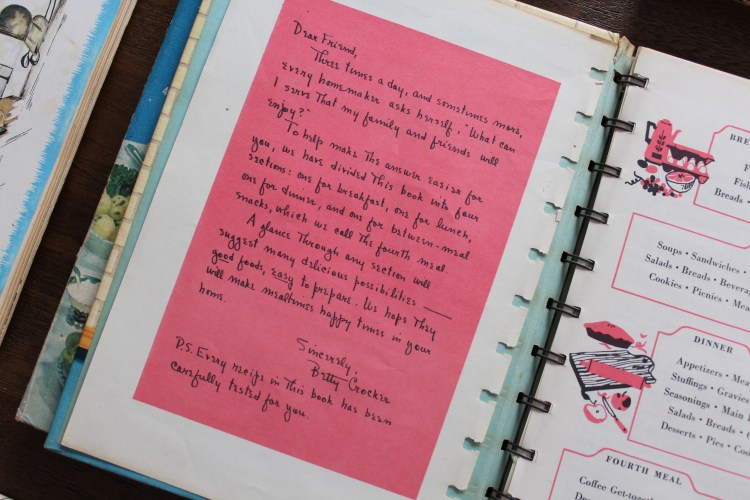 Dear Friend,
Three times a day, and sometimes more,
every homemaker asks herself, "What can
I serve that my family and friends will
enjoy?"
To help make the answer easier for
you, we have divided this book into four
sections: one for breakfast, one for lunch,
one for dinner, and one for between-meal
snacks, which we call the fourth meal.
A glance through any section will
suggest many delicious possibilities —
good foods, easy to prepare. We hope they
will make mealtimes happy times in your
home.
Sincerely,
Betty Crocker
P.S. Every recipe in this book has been
carefully tested for you.
Soups • Sandwiches •
Salads • Breads •
Cookies • Picnics •
DINNER
Appetizers •
Stuffings •
Seasonings • Main
Salads • Breads •
Desserts • Pies •
FOURTH MEAL
Coffee
Breads •